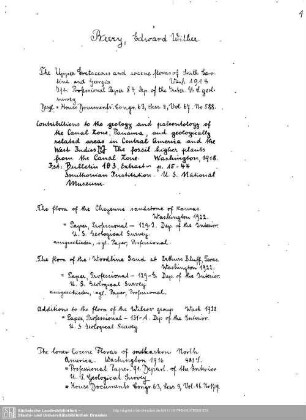 Berry, Edward Wilber
The Upper Cretaceous and eocene floras of South Caro-
lina and Georgia Wash. 1914
Prof. Professional Paper 84, Dep. of the Inter. U.S. geol.
survey
Congr. 63, Sess. 2, Vol. 67. No. 588.
Contributions to the geology and paleontology of
the Canal Zone, Panama, and geologically
related areas in Central America and the
West Indies The fossil higher plants
from the Canal Zone. Washington, 1918.
Bulletin 103, Extract p. 15-44
Smithonian Institution. U. S. National
Museum
The flora of the Cheyenne sandstone of Kansas
Washington 1922.
= Paper, Professional - 129-I. Dep. of the Interior.
U. S. Geological Survey
ausgeschieden, vgl. Paper, Professional.
The flora of the Woodbine Sand at Arthurs Bluff, Texas
Washington 1922.
= Paper, Professional - 129-G. Dep. of the Interior.
U. S. Geological Survey
ausgeschieden, vgl. Paper, Professional.
Additions to the flora of the Wilcox group Wash 1922
= Paper, Professional - 131-A. Dep. of the Interior.
U. S. Geological Survey
The lower Eocene Floras of southeastern North
America. Washington 1916 481 S.
= Professional Paper. 91. Depart. of the Interior
U. S. Geological Survey
= House Documents Congr. 63, Sess. 3, Vol.